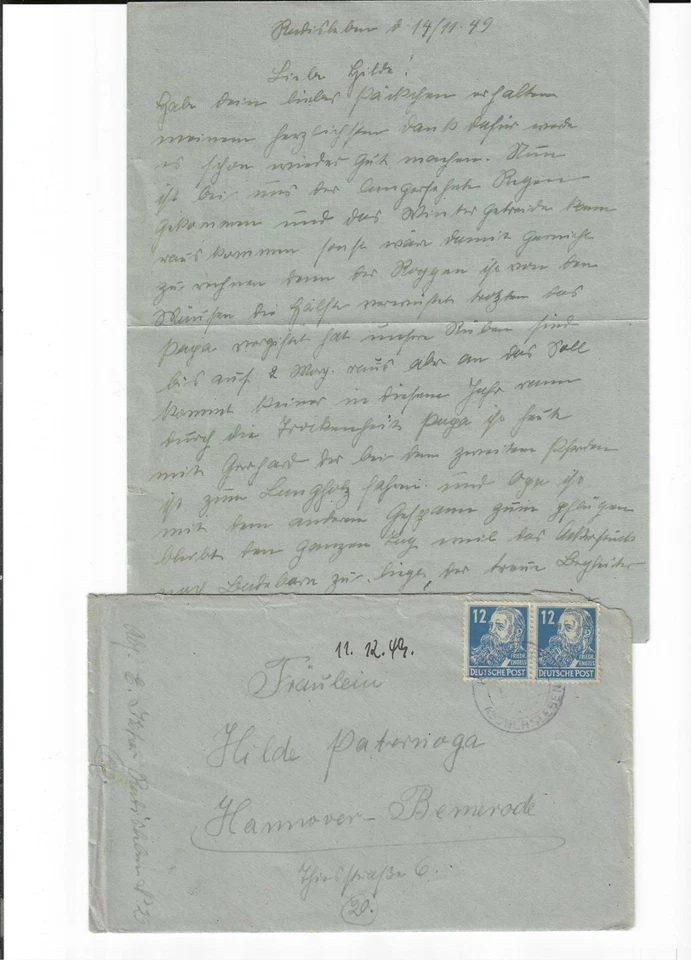 Radisleben d. 14/11.49
Liebe Hilde!
Habe dein liebes Päckchen erhalten
meinen herzlichsten Dank dafür werde
es schon wieder gut machen. Nun
ist bei uns der langersehnte Regen
gekommen und das Wintergetreide kann
raus kommen sonst wäre damit garnicht
zu rechnen denn der Roggen ist von den
Mäusen die Hälfte trotzdem das
Papa vergiftet hat unsre Rüben sind
bis auf 2 Morg. raus aber an das Soll
kommt keiner in diesem Jahr ran
durch die Trockenheit Papa ist heute
mit Gerhard der bei den zweiten Pferden
ist zum Langholz fahren und Opa ist
mit dem anderen Gespann zum pflügen
bleibt den ganzen Tag weil das Ackerstück
nach zu liegt, der treue Begleiter
11. 12. 49.
12
FRIEDR. ENGELS
DEUTSCHE POST
12
FRIEDR. ENGELS
DEUTSCHE POST
Fräulein
Hilde Paternoga
Hannover-Bemerode
Thiesstraße 6.
(20.)
Abs. E. Radisleben